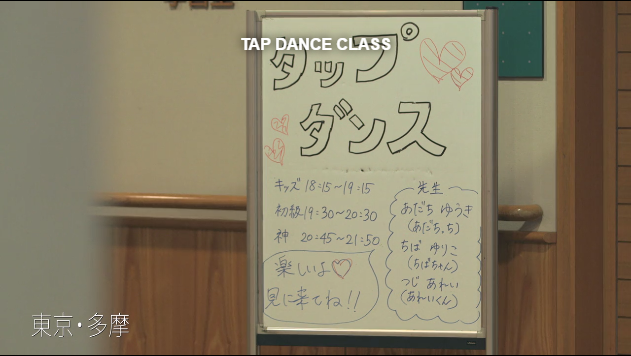 TAP DANCE CLASS
タップ
ダンス
キッズ 18:15～19:15
初級 19:30～20:30
神 20:45～21:50
楽しいよ♡
見に来てね!!
先生
あだち ゆうき
(あだちっち)
ちば ゆりこ
(ちばちゃん)
つじ あれい
(あれいくん)
東京・多摩